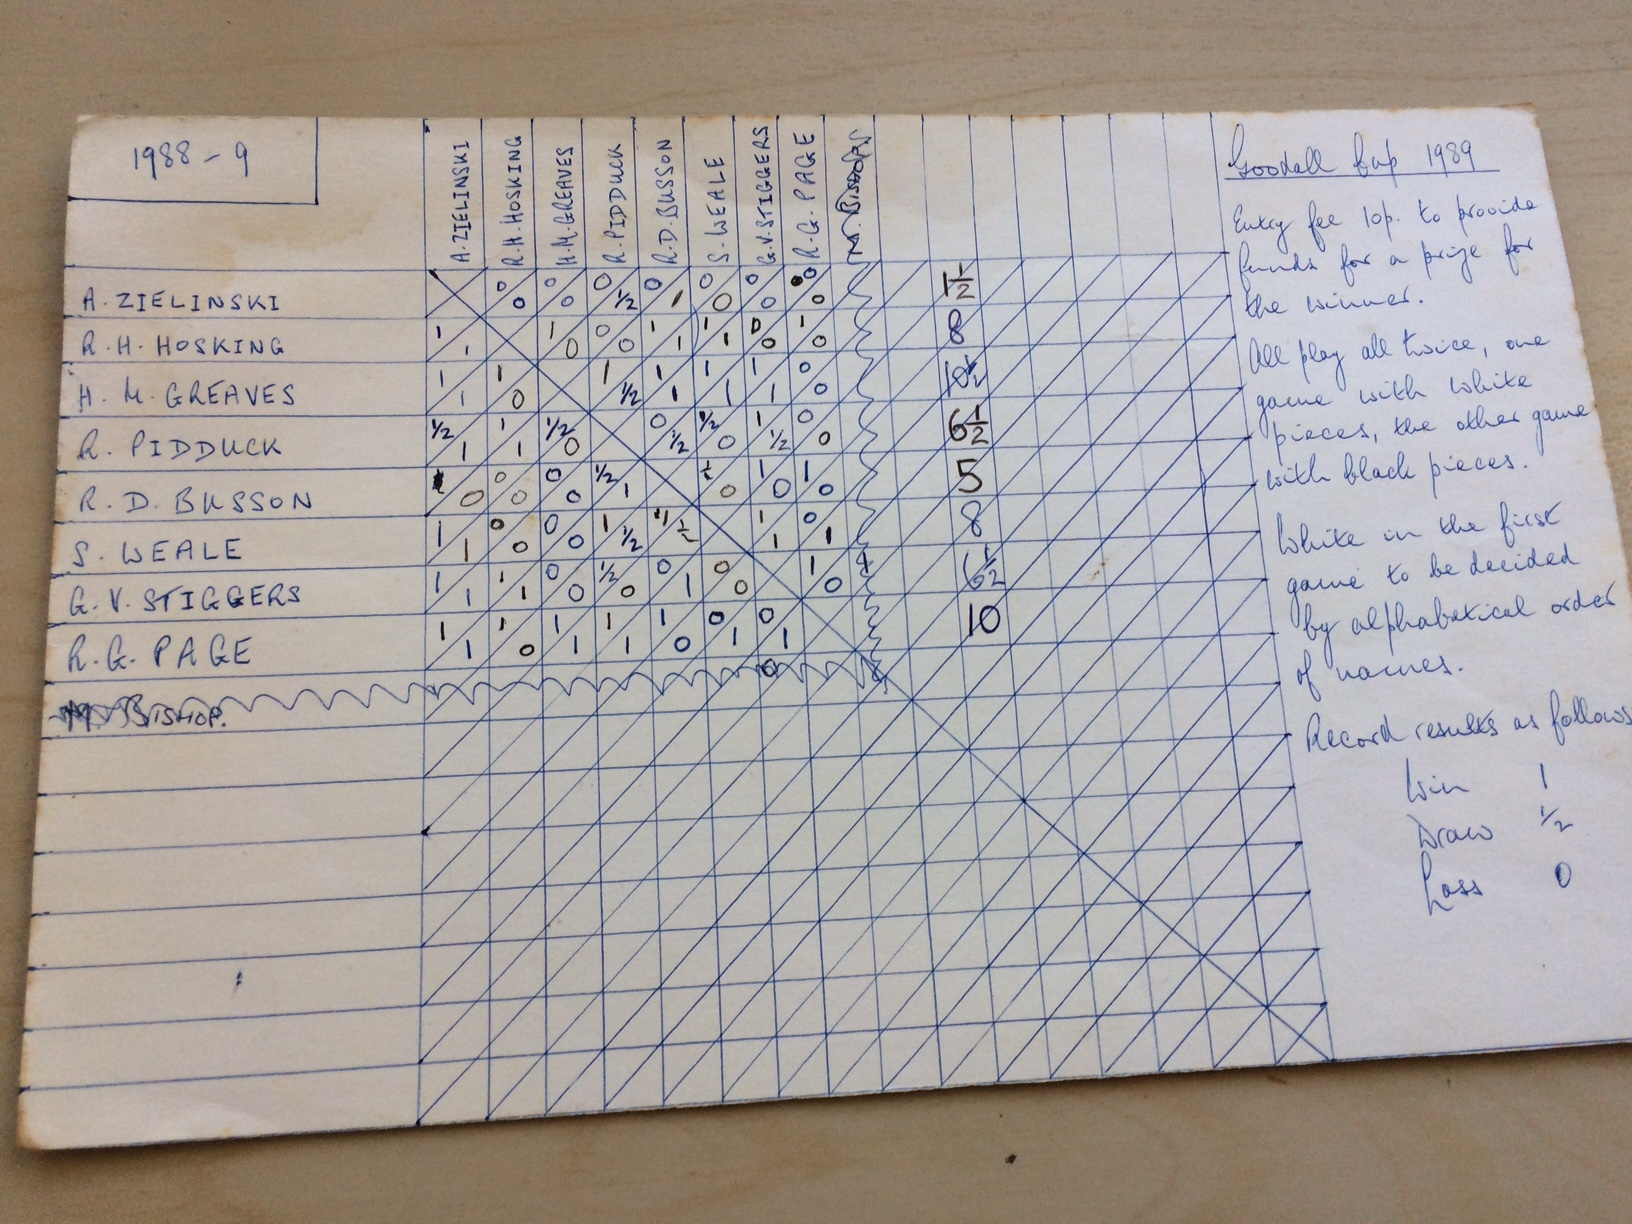 1988-9
A. ZIELINSKI
R.H. HOSKING
H.M. GREAVES
R. PIDDUCK
R.D. BUSSON
S. WEALE
G.V. STIGGERS
R.G. PAGE
M. BISHOP
A. ZIELINSKI 0 0 0 0 0 1/2 0 1 0 0 0 0 0 0 1 1/2
R.H. HOSKING 1 1 1 0 0 0 1 1 1 1 0 0 1 0 8
H. M. GREAVES 1 1 1 0 1 1/2 1 1 1 1 1 1 0 0 10 1/2
R. PIDDUCK 1/2 1 1 1 1/2 0 0 1/2 1/2 0 1 1/2 0 0 6 1/2
R. D. BUSSON 0 0 0 0 0 1/2 1 1/2 0 1 0 1 0 5
S. WEALE 1 1 0 0 0 0 1 1/2 1 1/2 1 1 0 1 8
G. V. STIGGERS 1 1 1 1 0 0 1/2 0 0 1 0 0 1 0 6 1/2
R. G. PAGE 1 1 1 0 1 1 1 1 1 0 0 1 0 1 10
0
M. BISHOP.
Goodall Cup 1989
Entry fee 10p. to provide
funds for a prize for
the winner.
All play all twice, one
game with white
pieces, the other game
with black pieces.
White in the first
game to be decided
by alphabetical order
of names.
Record results as follows
Win 1
Draw 1/2
Loss 0